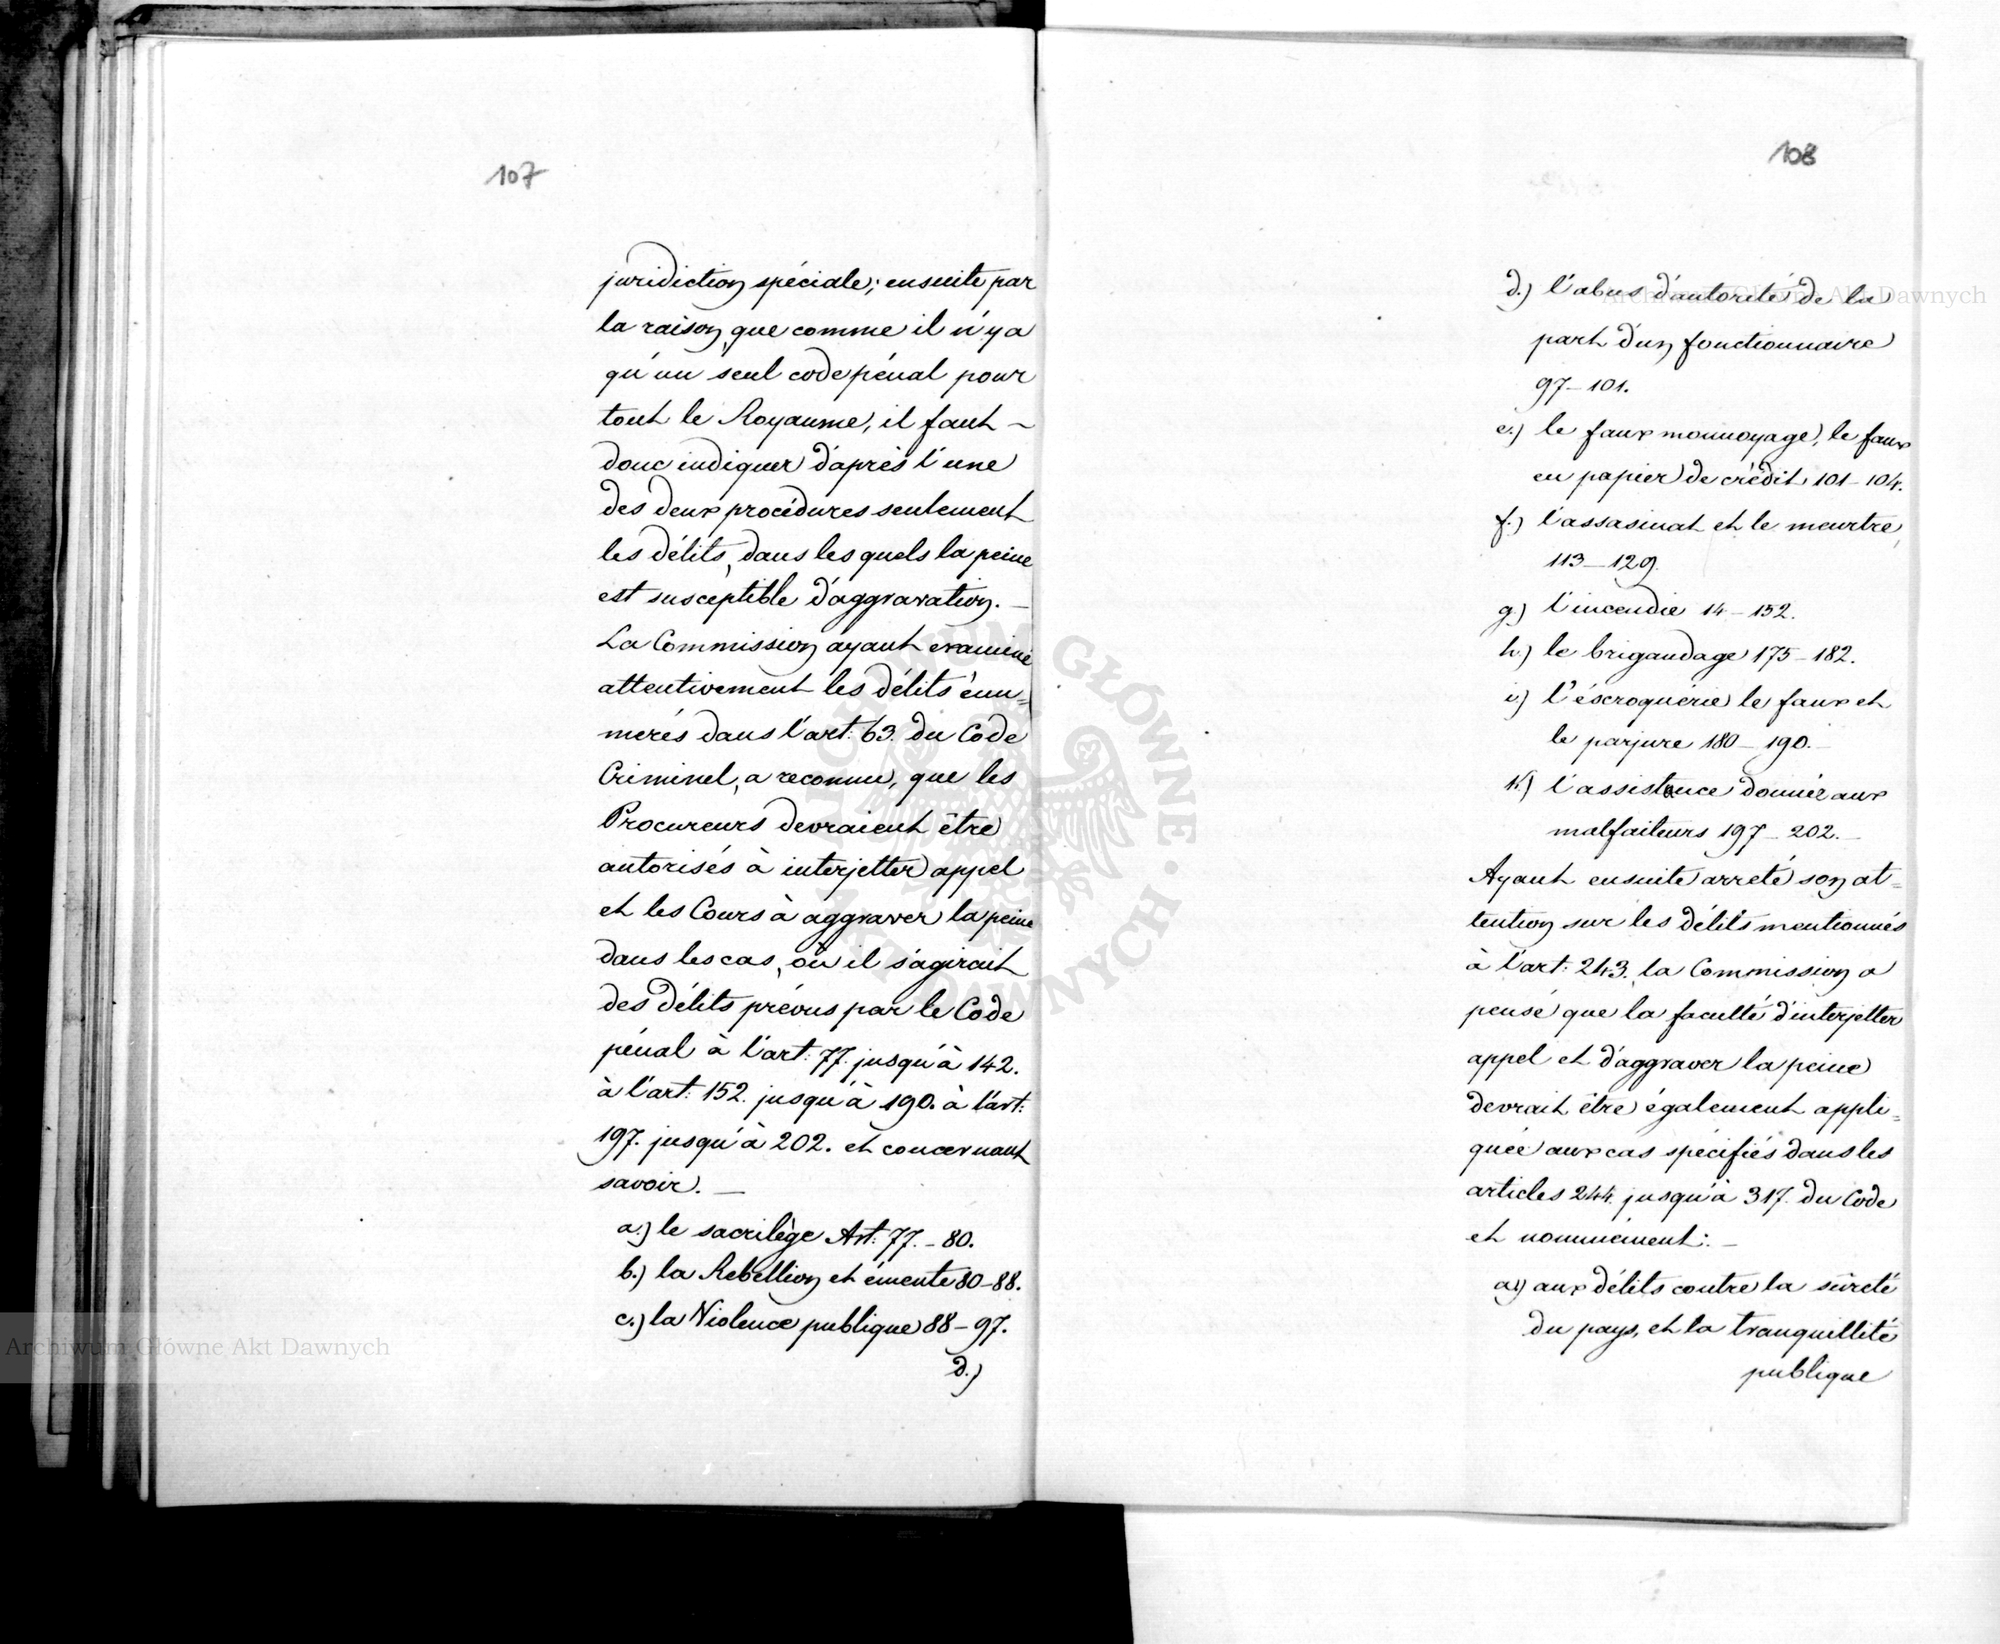 107
juridiction spéciale; ensuite par
la raison, que comme il n'y a
qu'un seul code pénal pour
tout le Royaume, il faut –
donc indiquer d'après l'une
des deux procédures seulement
les délits, dans les quels la peine
est susceptible d'aggravation. —
La Commission ayant examiné
attentivement les délits énu=
merés dans l'art: 63. du Code
Criminel, a reconnu, que les
Procureurs devraient être
autorisés à interjetter appel
et les Cours à aggraver la peine
dans les cas, où il s'agirait
des délits prévus par le Code
pénal à l'art: 77. jusqu'à 142.
à l'art: 152. jusqu'à 190. à l'art:
197. jusqu'à 202. et concernant
savoir. —
a.) le sacrilège Art: 77. – 80.
b.) la Rebellion et émeute 80–88.
c.) la Violence publique 88 – 97.
d.)
108
d.) l'abus d'autorité de la
part d'un fonctionnaire
97 – 101.
e.) le faux monnoyage, le faux
en papier de crédit 101 – 104.
f.) l'assasinat et le meurtre,
113 – 129.
g.) l'incendie 14 – 152.
h.) le brigandage 175 – 182.
i.) l'éscroquérie le faux et
le parjure 180 – 190. –
k.) l'assistence donnée aux
malfaiteurs 197 – 202. –
Ayant ensuite arreté son at=
tention sur les délits mentionnés
à l'art: 243. la Commission a
pensé que la faculté d'interjetter
appel et d'aggraver la peine
devrait être également appli=
quée aux cas spécifiés dans les
articles 244. jusqu'à 317. du Code
et nommément: –
a.) aux délits contre la sûreté
du pays, et la tranquillité
publique
Archiwum Główne Akt Dawnych
Archiwum Główne Akt Dawnych
ARCHIWUM GŁÓWNE AKT DAWNYCH